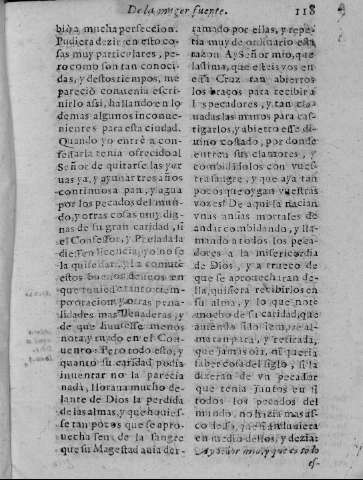 De la muger fuerte. 118
bio a mucha perfeccion.
Pudiera dezir en esto co-
sas muy particulares, pe-
ro como son tan conoci-
das, y destos tiempos, me
pareciò convenia escri-
uirlo assi, hallando en lo
demas algunos inconue-
nientes para esta ciudad.
Quando yo entrè a con-
fessarla tenia ofrecido al
Señor de quitarse las
uas ya, y ayunar tres años
continuos a pan, y agua
por los pecados del mun-
do, y otras cosas muy dig-
nas de su gran caridad, si
el Confessor, y Prelada la
diessen licencia, yo no se
la quise dar, y la comutè
estos buenos deseos en
que tuuiesse tanto tiem-
po oracion, y otras pena-
lidades mas lleuaderas, y
de que huuiesse menos
nota, y ruido en el Con-
uento: Pero todo esto, y
quanto su caridad podia
inuentar no la parecia
nada, lloraua mucho de-
lante de Dios la perdida
de las almas, y que huuies-
se tan pocos que se apro-
uechassen de la sangre
que su Magestad auia der-
ramado por ellas, y repe-
tia muy de ordinario esta
razon Ay Señor mio, que
lastima, que esteis vos en
essa Cruz tan abiertos
los braços para recibir a
los pecadores, y tan cla-
uadas las manos para cas-
tigarlos, y abierto esse di-
uino costado, por donde
entren sus clamores, y
combidandolos con vues-
tra sangre, y que aya tan
pocos que oygan vuestras
vozes! De aqui la nacian
vnas ansias mortales de
andar combidando, y lla-
mando a todos los peca-
dores a la misericordia
de Dios, y a trueco de
que se aprouecharan de-
lla, quisiera recibirlos en
su alma, y lo que note
mucho de su caridad, que
auiendo sido siempre al-
ma tan para, y retirada,
que jamas oia, ni queria
saber cosa del siglo, si la
dixeran de vn pecador
que tenia juntos en si
todos los pecados del
mundo, no hazia mas as-
co desso, que si anduuiera
en medio dellos, y dezia:
Ay Señor mio, y que es todo
es-